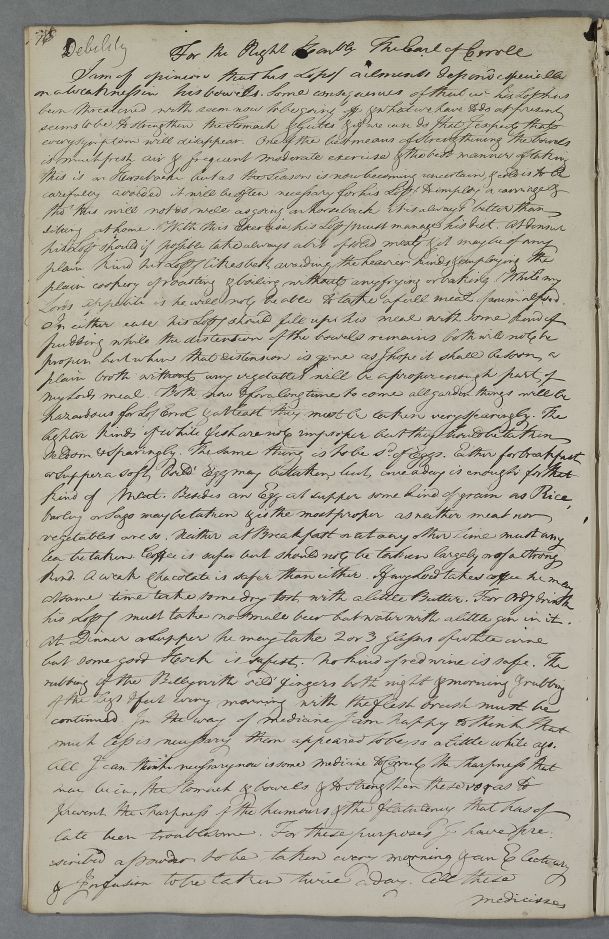 Debility
For the Right Honble The Earl of Errole
I am of opinion that his Lops ailments depend especially
on a weakness in his bowels. Some consequences of that which his Lop has
been threatened with seem now to be going off & what we have to do at present
seems to be to strengthen the Stomach & Guts & if we can do that I expect that
every symptom will disappear. One of the best means of strengthening the bowels
is much fresh air & frequent moderate exercise & the best manner of taking
this is on Horseback but as the Season is now becoming uncertain & cold is to be
carefully avoided it will be often necessary for his Lop to employ a carriage &
tho' this will not do so well as going on horseback it is always better than
sitting at home. With this Exercise his Lop must manage his diet. At dinner
his Lop should if possible take always a bit of solid meat & it may be of any
plain kind his Lop likes best, avoiding the heavier kinds & employing the
plain cookery of roasting & boiling without any frying or baking. While my
Lords appetite is he will not be able to take a full meal of animal food.
In either case his Lop should fill up his meal with some kind of
pudding while the distension of the bowels remains broth will not be
proper but when that distension is gone as I hope it shall be soon, a
plain broth without any vegetables will be a proper enough part of
my Lords meal. Both now & for a long time to come all garden things will be
hazardous for Lord Errol & at least they must be taken very sparingly. The
lighter kinds of white fish are not improper but they should be taken
seldom & sparingly. The same thing is to be sd of Eggs. Either for breakfast
or supper a soft boil'd Egg may be taken but one a day is enough for that
kind of Meat. Besides an Egg at supper some kind of grain as Rice,
barley or Sago may be taken & is the most proper as neither meat nor
vegetables are so. Neither at Breakfast or at any other time must any
tea be taken Coffee is safer but should not be taken largely nor of a strong
kind. A weak Chocolate is safer than either. If my Lord takes coffee he may
at same time take some dry tost with a little Butter. For Ordy drink
his Lop must take no Small beer but water with a little gin in it.
At Dinner or Supper he may take 2 or 3 glasses of white wine
but some good Hock is safest. No kind of red wine is safe. The
rubbing of the Belly with oil'd fingers both night & morning & rubbing
of the legs & feet every morning with the flesh brush must be
continued. In the way of medicine I am happy to think that
much less is necessary than appeared to be so a little while ago.
All I can think necessary now is some medicine to correct the sharpness that
may be in the Stomach & bowels & to strengthen these so as to
prevent the Sharpness of the humours & the flatulency that has of
late been troublesome. For these purposes I have pre-
scribed a powder to be taken every morning & an Electuary
& Infusion to be taken twice a day. All these
medicines